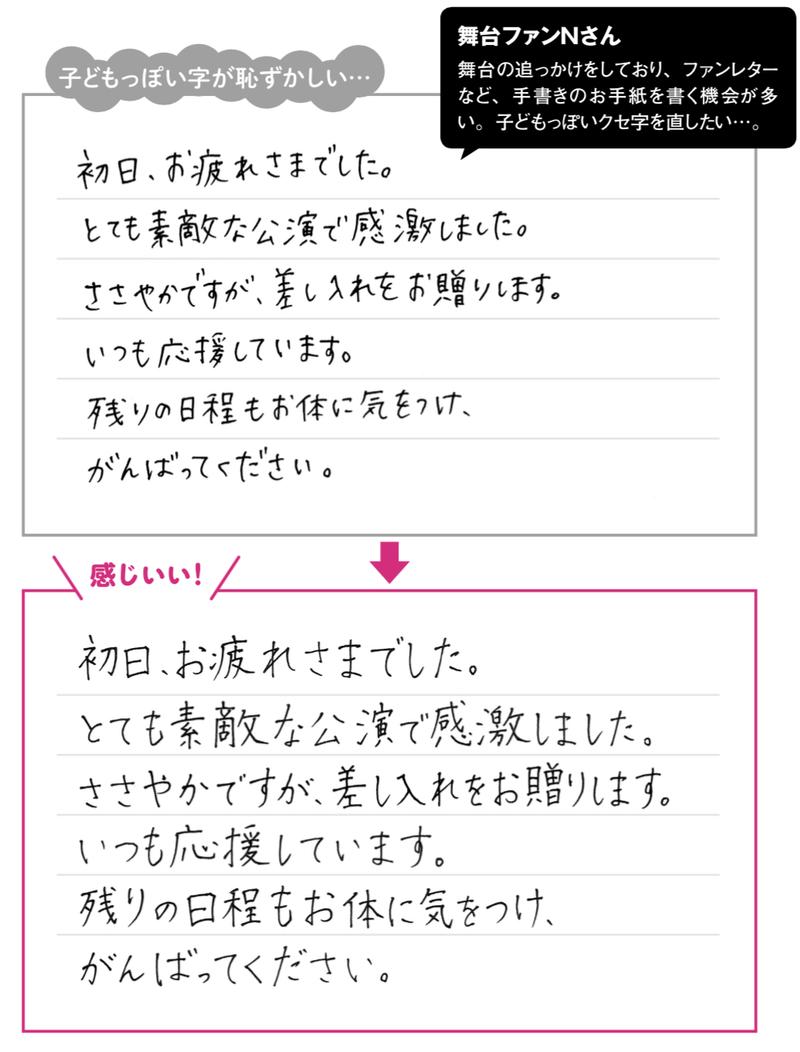 舞台ファンNさん
舞台の追っかけをしており、ファンレター
など、手書きのお手紙を書く機会が多
い。子どもっぽいクセ字を直したい…。
子どもっぽい字が恥ずかしい…
初日、お疲れさまでした。
とても素敵な公演で感激しました。
ささやかですが、差し入れをお贈りします。
いつも応援しています。
残りの日程もお体に気をつけ、
がんばってください。
感じいい！
初日、お疲れさまでした。
とても素敵な公演で感激しました。
ささやかですが、差し入れをお贈りします。
いつも応援しています。
残りの日程もお体に気をつけ、
がんばってください。